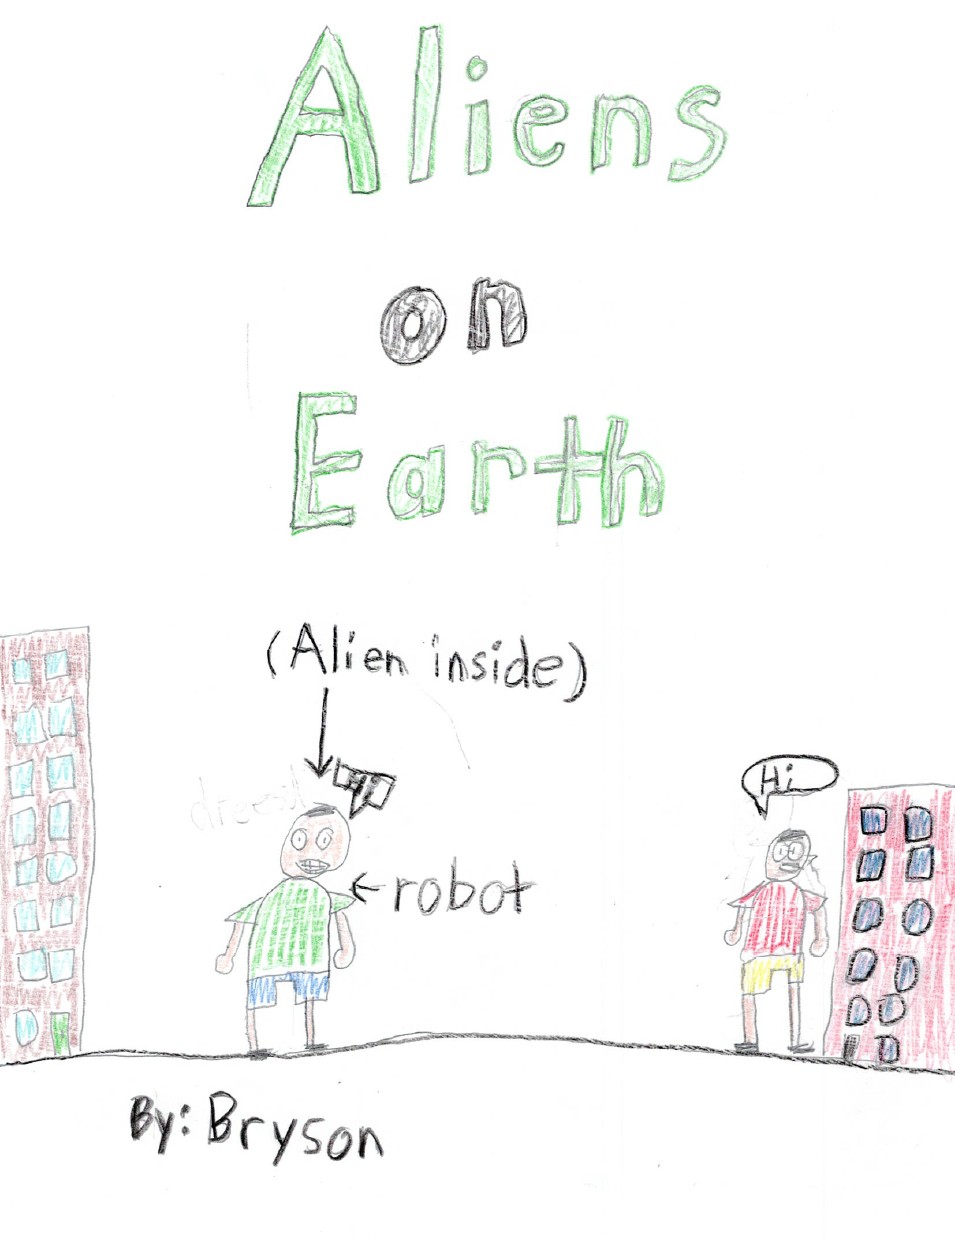 Aliens
on
Earth
(Alien inside)
Hi
Hi
robot
By: Bryson